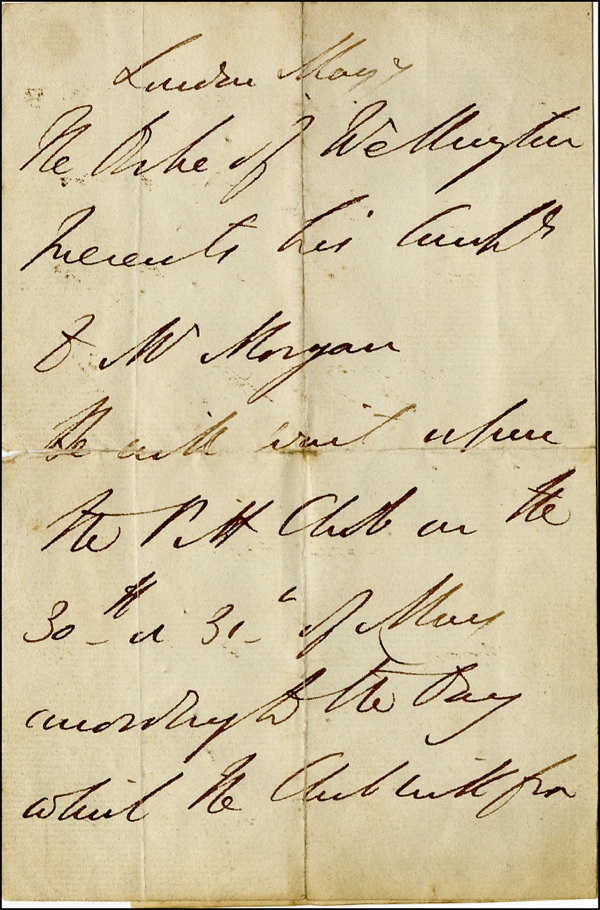 London May
The Duke of Wellington
presents his Compts
to Mr Morgan
He will wait upon
the Pitt Club on the
30th or 31st of May
according to the Day
which the Club will fix